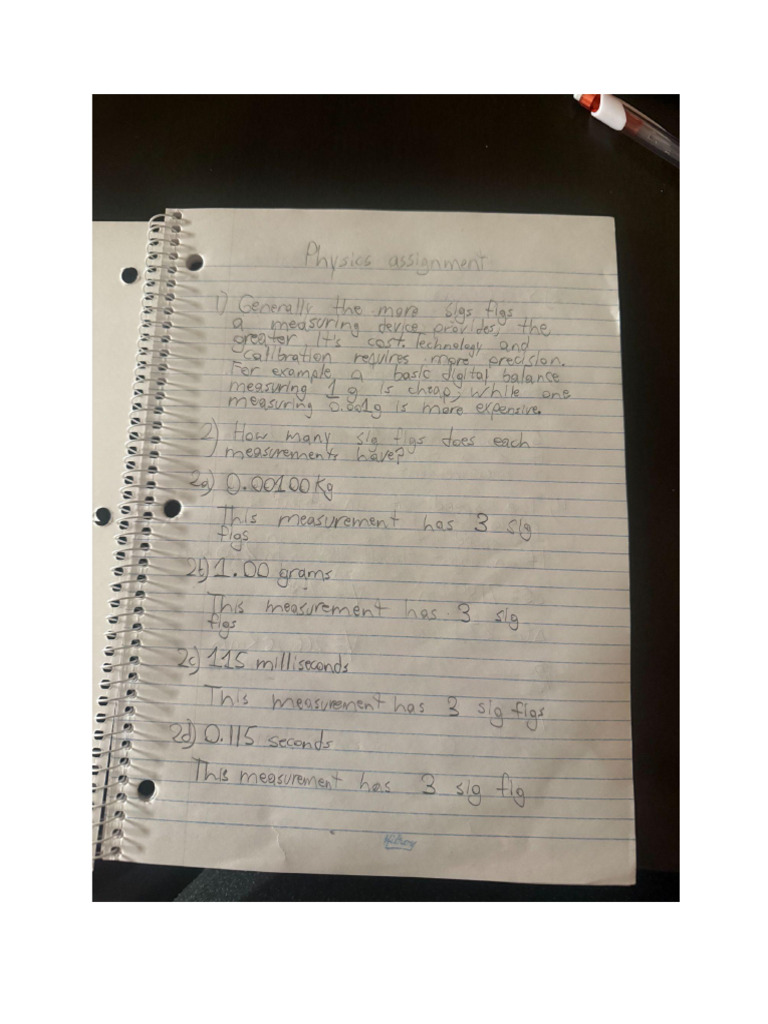 Physics assignment
1) Generally the more sigs figs
a measuring device provides, the
greater it's cost. Technology and
calibration requires more precision.
For example a basic digital balance
measuring 1 g is cheap, while one
measuring 0.001g is more expensive.
2) How many sig figs does each
measurements have?
2a) 0.00100 Kg
This measurement has 3 sig
figs
2b) 1.00 grams
This measurement has 3 sig
figs
2c) 115 milliseconds
This measurement has 3 sig figs
2d) 0.115 seconds
This measurement has 3 sig fig